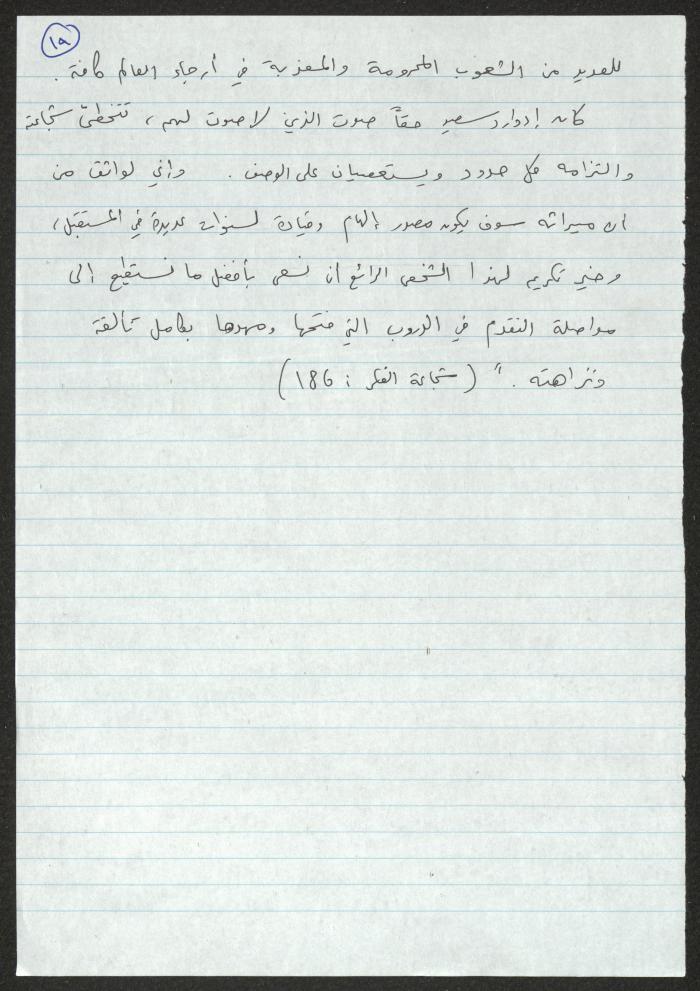 ١٩
للعديد من الشعوب المحرومة والمعذبة في أرجاء العالم كافة .
كان إدوارد سعيد حقاً صوت الذين لا صوت لهم، تتخطى شجاعته
والتزامه كل حدود ويستعصيان على الوصف . وإني لواثق من
ان ميراثه سوف يكون مصدر إلهام وقيادة لسنوات عديدة في المستقبل،
وخير تكريم لهذا الشخص الرائع ان نسعى بأفضل ما نستطيع إلى
مواصلة التقدم في الدروب التي فتحها ومهدها بكامل تألقه
ونزاهته . " ( شجاعة الفكر : 186 )